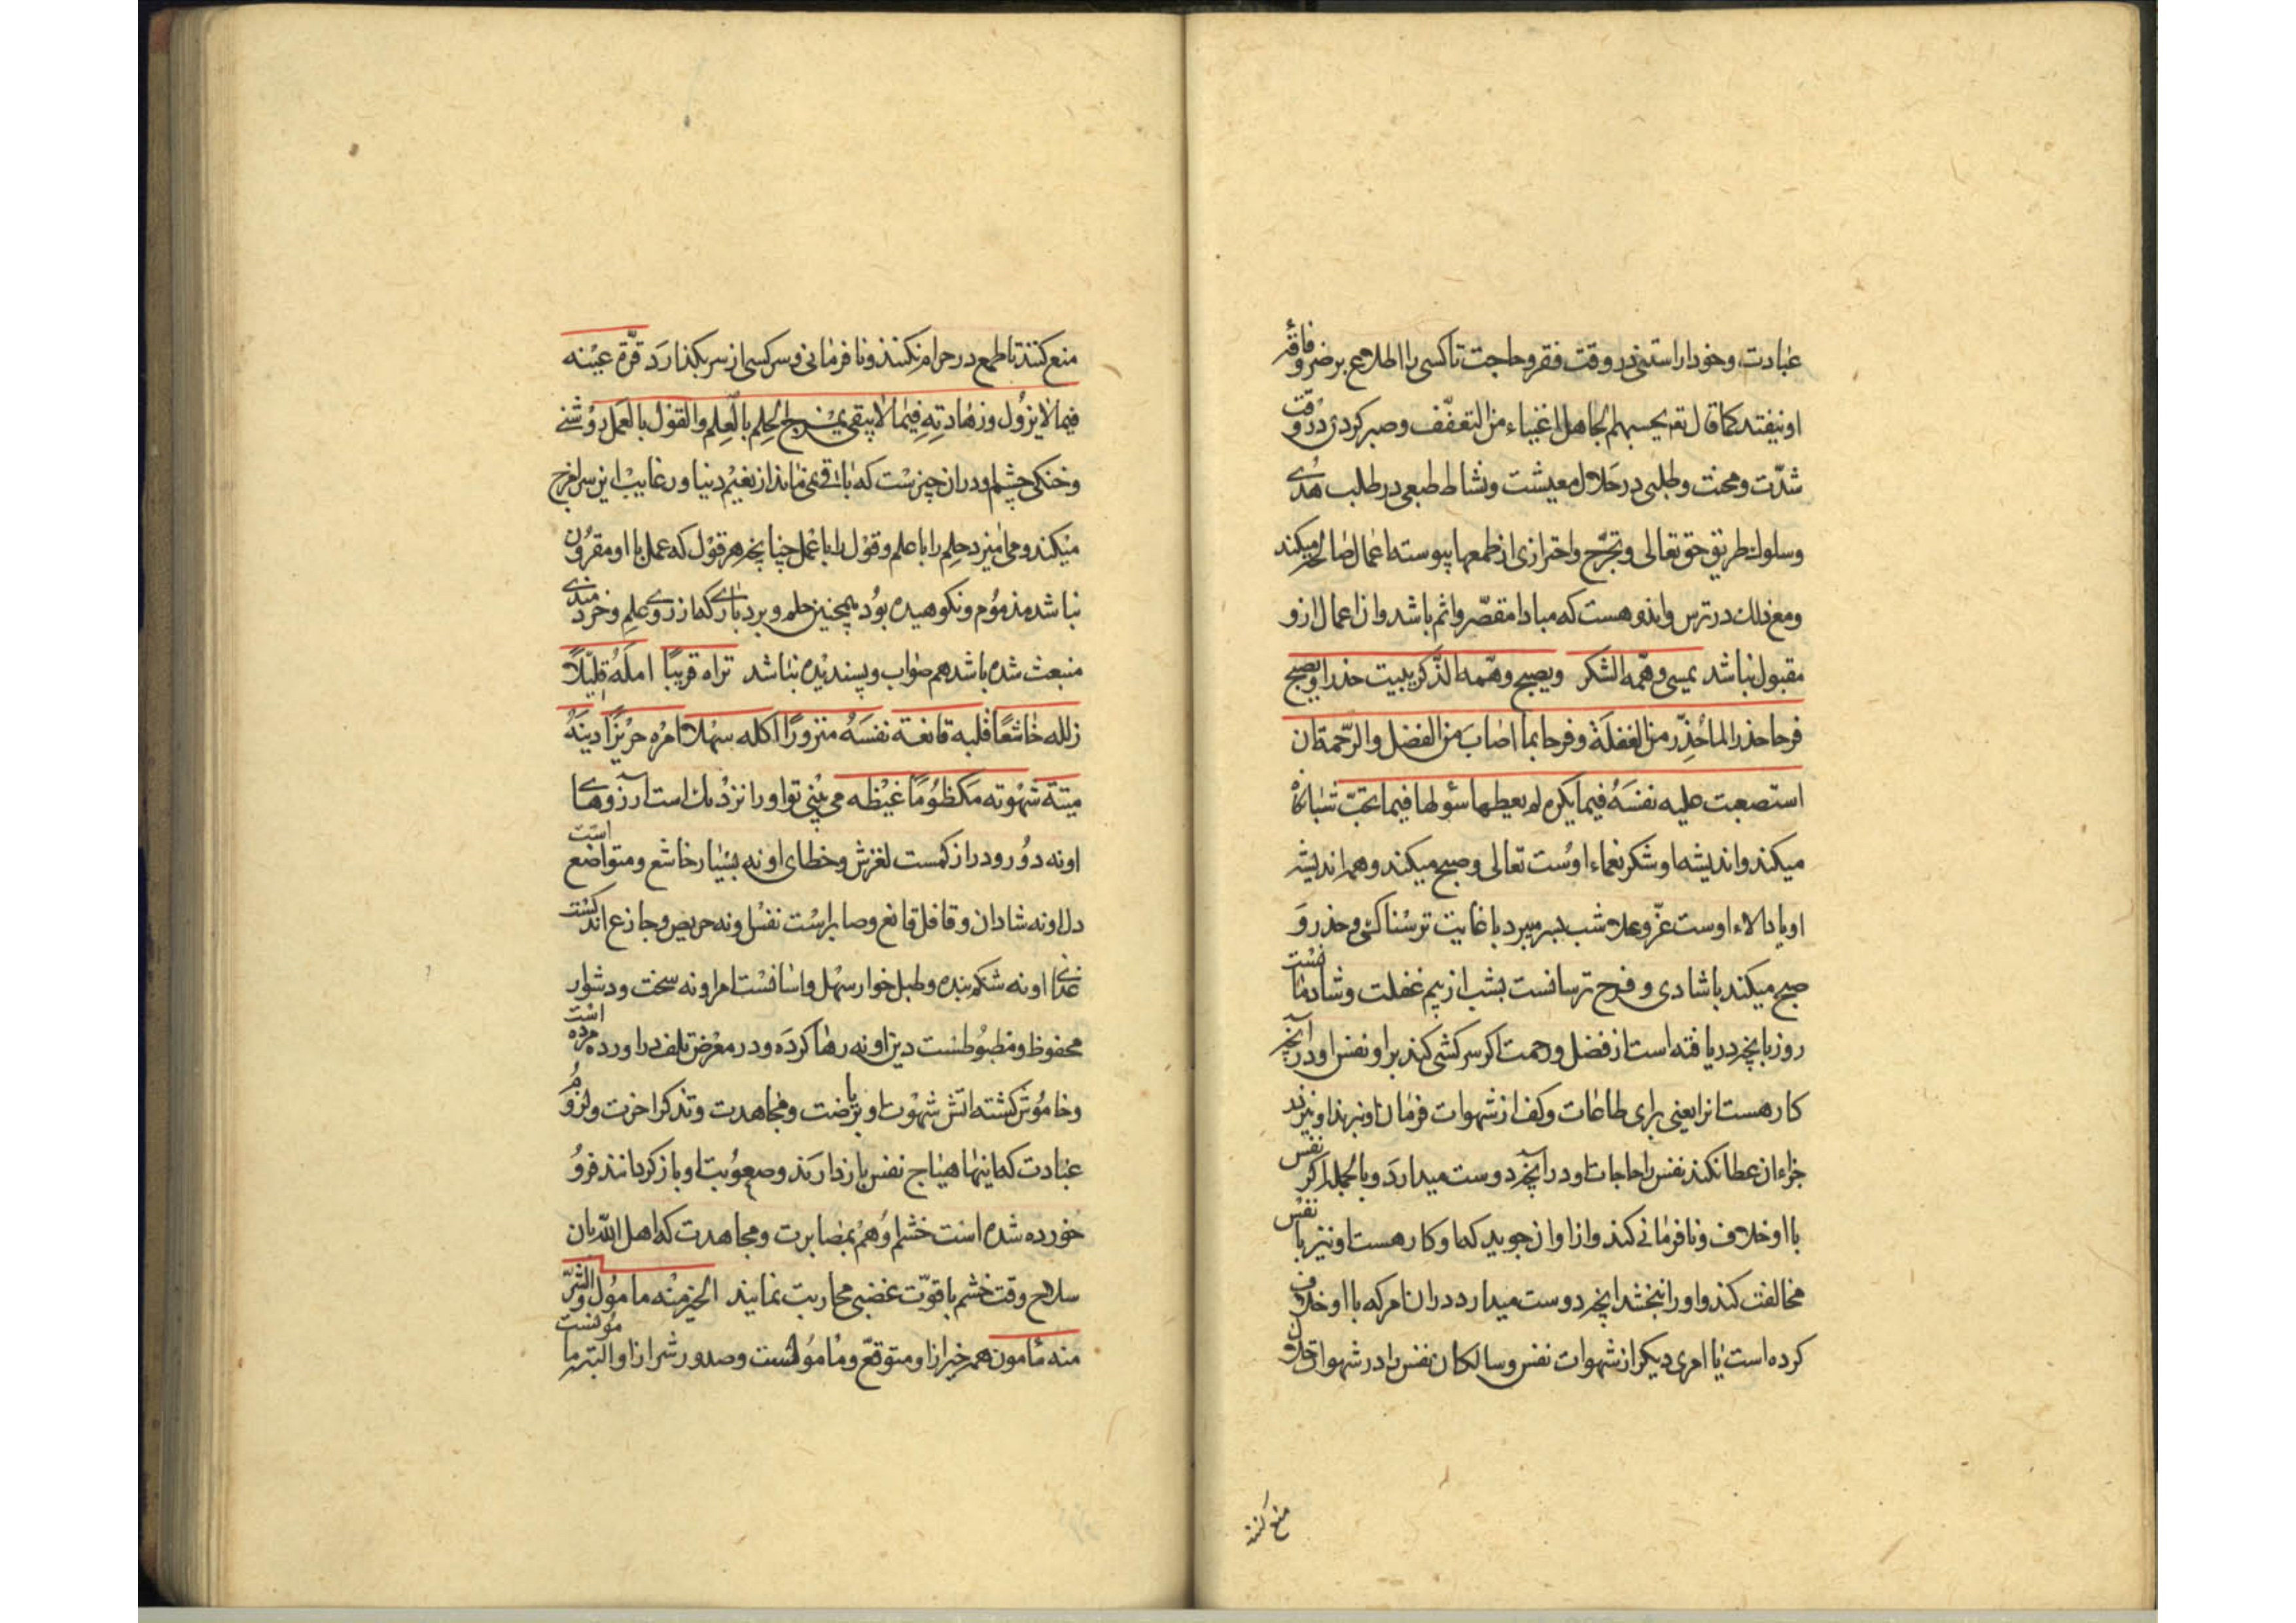 عبادت و خود را راستنی در وقت فقر و حاجت تا کسی را اطلاع بر ضر و فاقهٔ
او نیفتد کما قال تعم یحسبهم الجاهل اغنیاء من التعفّف و صبر کردی در وقت
شدّت و محنت و طلبی در حلال معیشت و نشاط طبعی در طلب هُدی
و سلوك طریق حق تعالی و تحرّج و احترازی از طمعها پیوسته اعمال صالحه میکند
و مع ذلك در ترس و اندوهست که مبادا مقصّر و اثم باشد و ان اعمال ازو
مقبول نباشد یمسی و همّه الشکر و یصبح و همّه الذّکر یبیت حذرا و یصبح
فرحا حذرا لما حُذِّر من الغفلة و فرحا بما اصاب من الفضل و الرّحمة ان
استصعبت علیه نفسَهُ فیما یکره لم یعطها سُولها فیما تحبّ شبانگاه
میکند و اندیشه او شکر نعماء اوست تعالی و صبح میکند و هم اندیشه
او یاد الاء اوست عزّ و علا شب بسر میبرد با غایت ترسناکئی و حذر و
صبح میکند با شادی و فرح ترسانست بشب از بیم غفلت و شادمانست
روز بانچه دریافته است از فضل و رحمت اگر سرکشی کند بر او نفس او در آنچه
کارهست انرا یعنی برای طاعات و کف از شهوات فرمان او نبرد او نیز
جزاء ان عطا نکند نفس را حاجات او در آنچه دوست میدارد و بالجمله اگر نفس
با او خلاف و نافرمانی کند و از او ان جوید که او کارهست او نیز با نفس
مخالفت کند و او را نبخشد انچه دوست میدارد در ان امر که با او خلاف
کرده است یا امری دیگر از شهوات نفس و سالکان نفس را در شهوات حلال
منع کنند
منع کنند تا طمع در حرام نکنند و نافرمانی و سرکسی از سر بگذارد قرّة عینه
فیما لا یزول و زهادته فیما لا یبقی یمزج الحلم بالعلم و القول بالعمل روشنی
و خنکی چشم او در ان چیزست که باقی نمی ماند از نعیم دنیا و رغایب این سرا مزج
میکند و می امیزد حلم را با علم و قول را با عمل چنانچه هر قول که عمل با او مقرون
نباشد مذموم و نکوهیده بود همچنین حلم و بردباری که از روی علم و خردمندی
منبعث شده باشد هم صواب و پسندیده نباشد تراه قریبًا امله قلیلًا
زلله خاشعًا قلبه قانعة نفسَهُ منزورًا اکله سهلا امره حریزًا دینَهُ
میتة شهوته مکظومًا غیظه می بینی تو او را نزدیك است آرزوهای
او نه دور و دراز کمست لغزش و خطای او نه بسیار خاشع و متواضع است
دل او نه شادان و غافل قانع و صابرست نفس او نه حریص و جازع اندکست
غذای او نه شکم بنده و طبل خوار سهل و اسانست امر او نه سخت و دشوار
محفوظ و مضبوطست دین او نه رها کرده و در معرض تلف در اورده مرده است
و خاموش گشته اتش شهوت او بریاضت و مجاهدت و تذکر اخرت و لزوم
عبادت که اینها هیاج نفس باز دارند و صعوبت او باز گردانند فرو
خورده شده است خشم او هم بمصابرت و مجاهدت که اهل الله بان
سلاح وقت خشم با قوّت غضبی محاربت نمایند الخیر منه مامول و الشّرّ
منه مأمون همه خیر از او متوقّع و مامولست و صدور شر از او البته مامونست